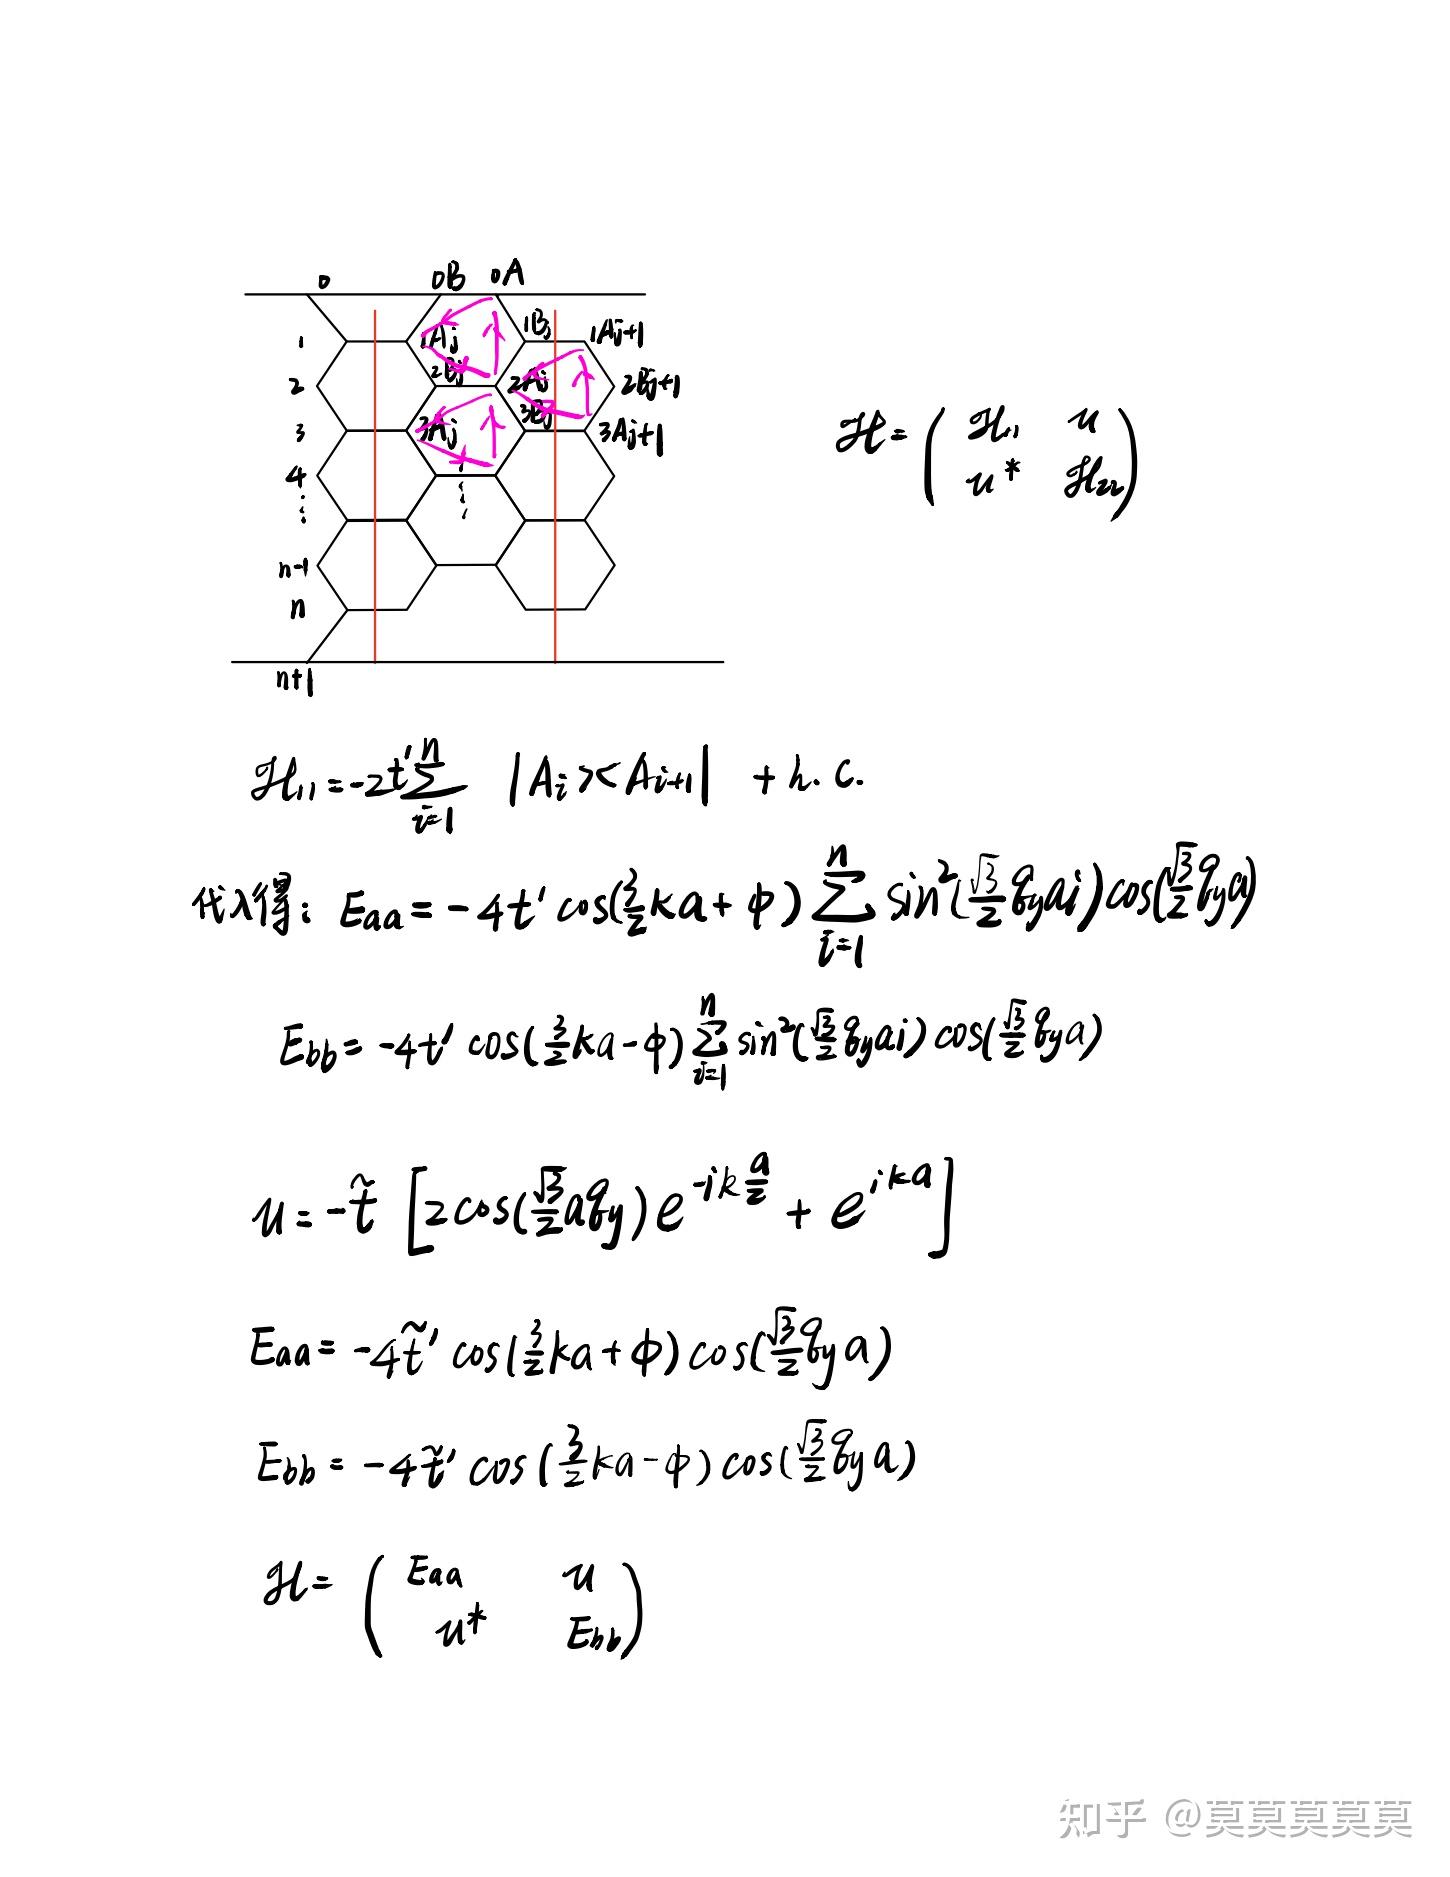 0 0B 0A
1 1Aj 1Bj 1Aj+1
2 2Bj 2Aj 2Bj+1
3 3Aj 3Bj 3Aj+1
4
⋮ ⋮
n-1
n
n+1
ℋ = ( ℋ₁₁ u
u* ℋ₂₂ )
ℋ₁₁ = -2t' Σ_{i=1}^{n} |A_i><A_{i+1}| + h.c.
代入得: Eaa = -4t' cos(3/2 ka + φ) Σ_{i=1}^{n} sin²(√3/2 q_y a i) cos(√3/2 q_y a)
Ebb = -4t' cos(3/2 ka - φ) Σ_{i=1}^{n} sin²(√3/2 q_y a i) cos(√3/2 q_y a)
u = -t̃ [2cos(√3/2 a q_y) e^{-ik a/2} + e^{ika}]
Eaa = -4t̃' cos(3/2 ka + φ) cos(√3/2 q_y a)
Ebb = -4t̃' cos(3/2 ka - φ) cos(√3/2 q_y a)
ℋ = ( Eaa u
u* Ebb )
知乎 @莫莫莫莫莫